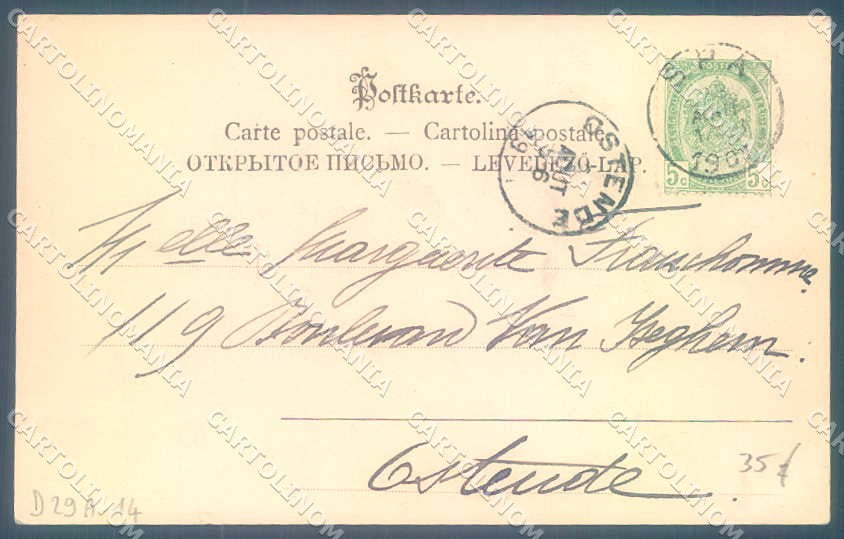 Postkarte.
Carte postale. — Cartolina postale.
ОТКРЫТОЕ ПИСЬМО. — LEVELEZŐ-LAP.
SPA
190
5c 5c
OSTENDE
AOUT
6
Mlle Marguerite Franchomme.
119 Boulevard Van Iseghem.
Ostende.
35
D29A 14
CARTOLINOMANIA